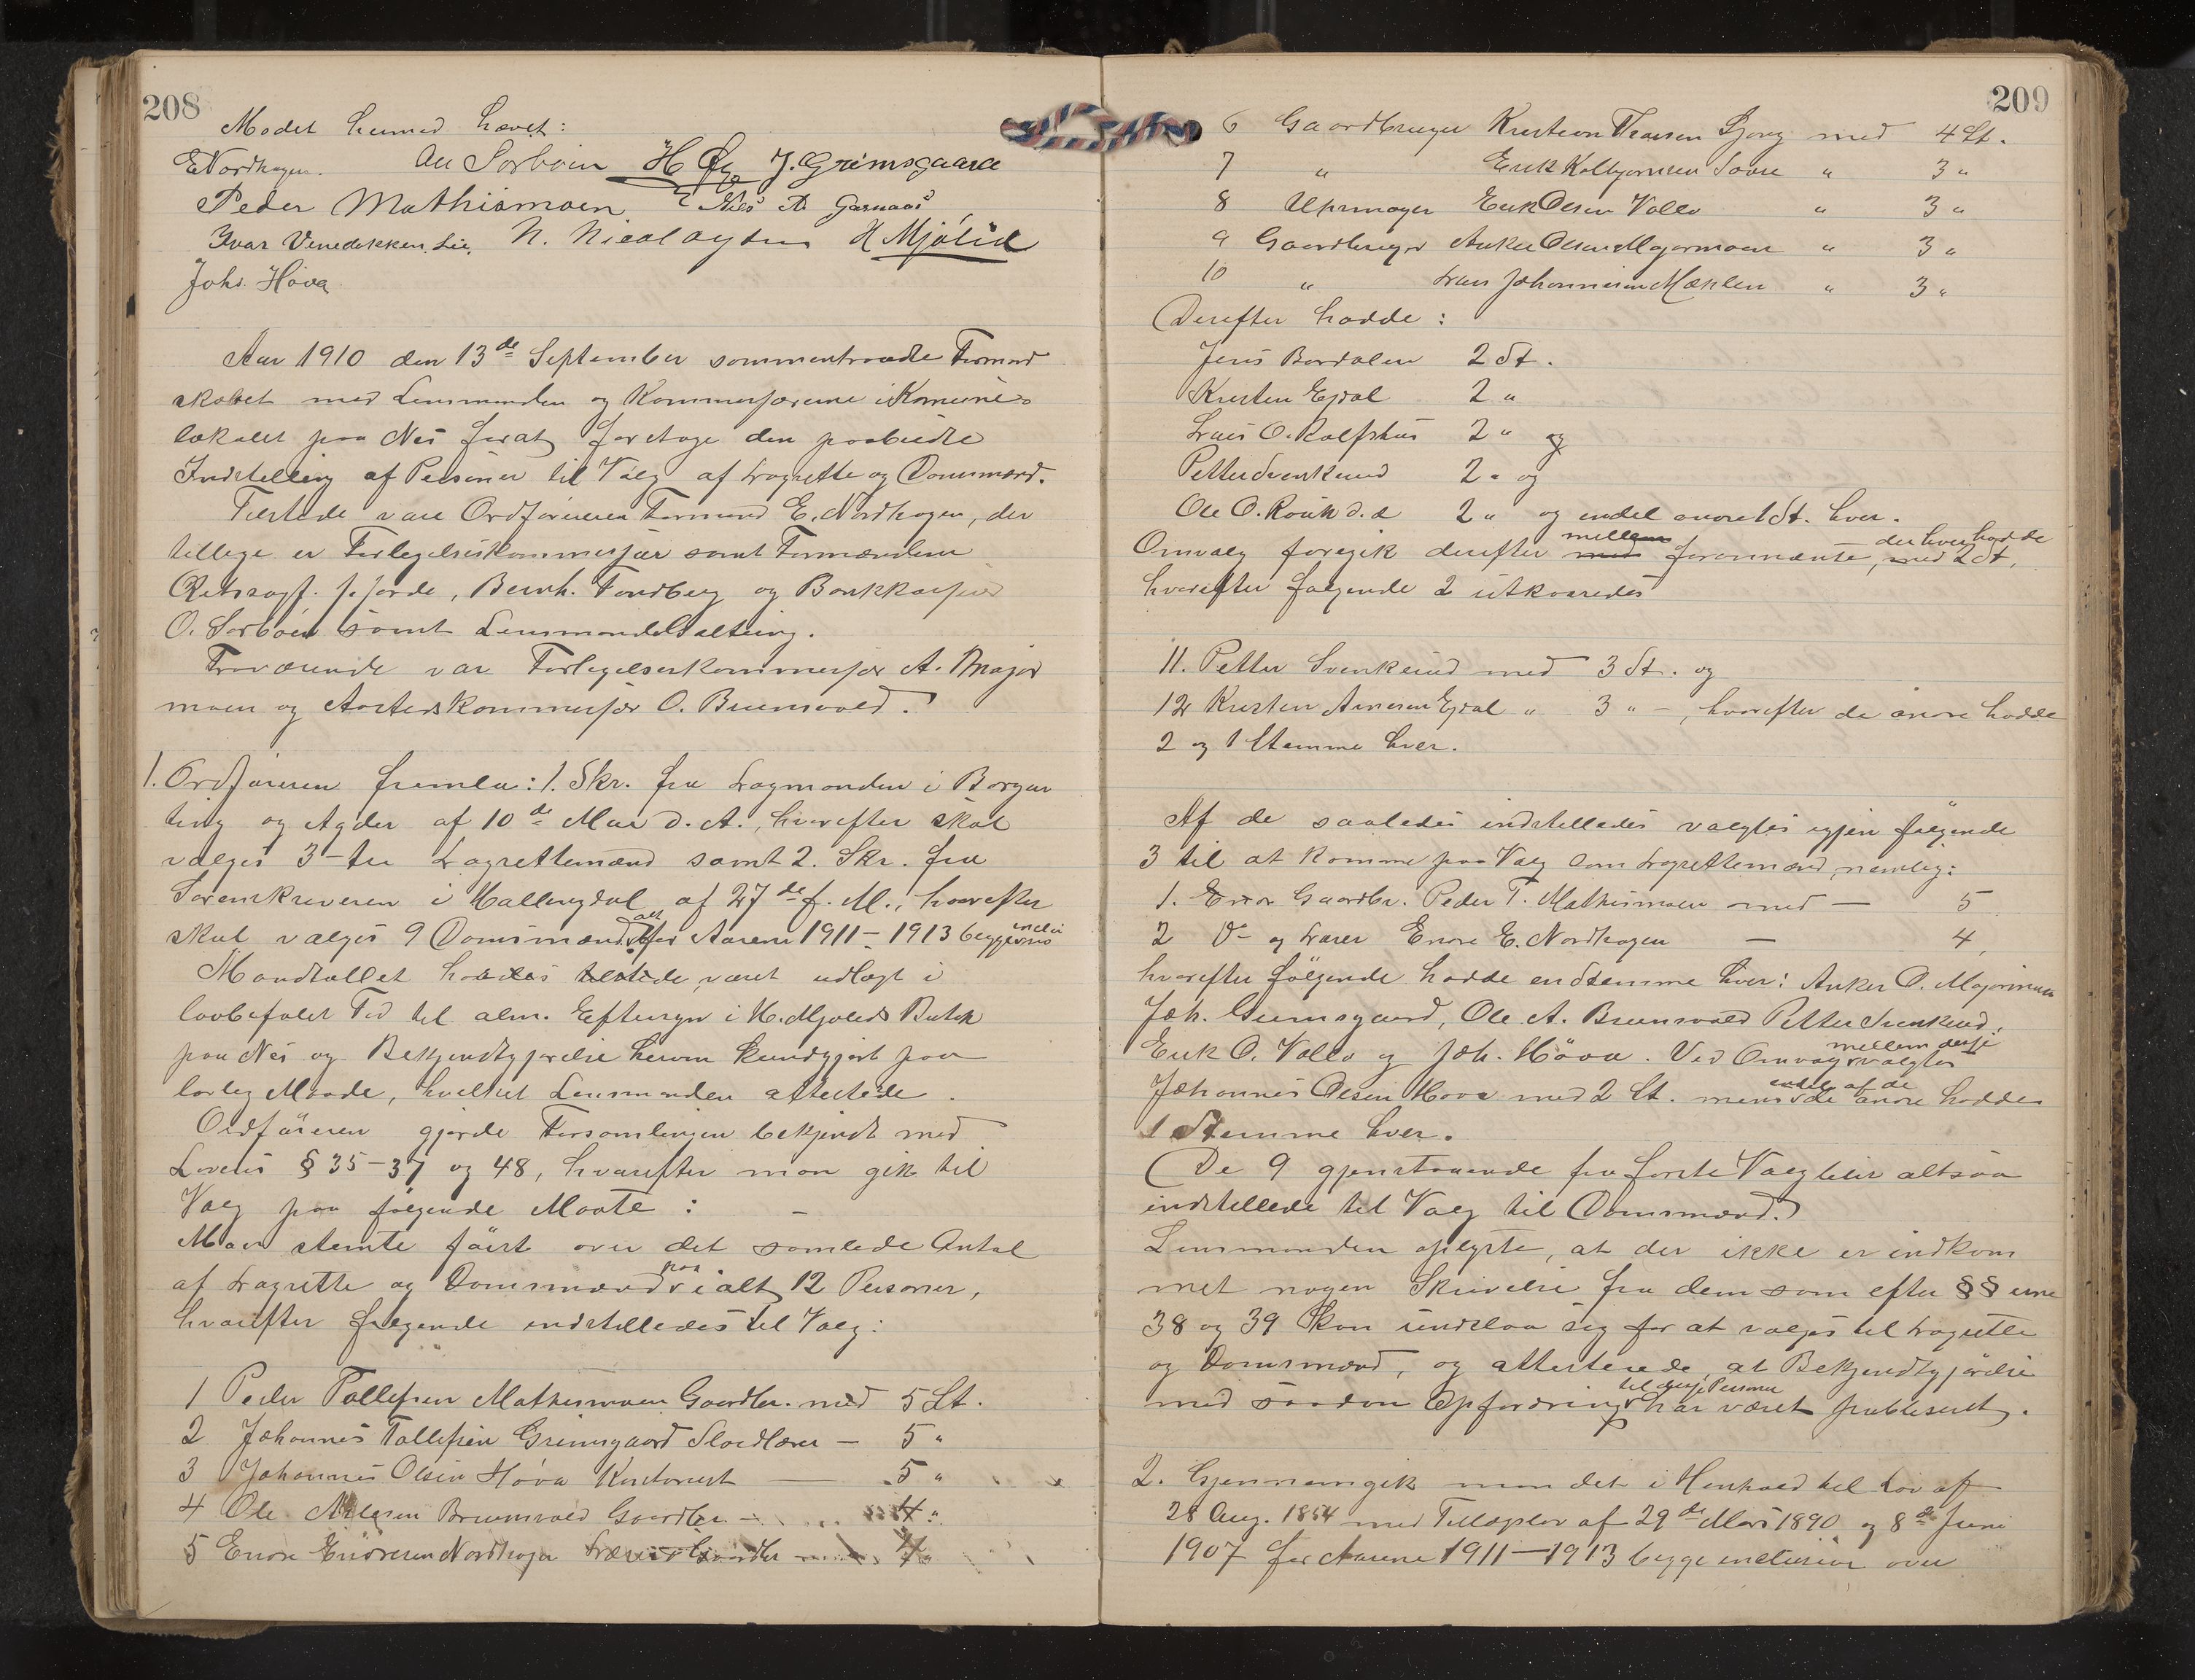 208
Mødet hermed hævet:
ENordhagen. Ole Sorbøen H Øye J. Grimsgaard
Peder Mathismoen Nils A Garnaas
Ivar Venedikken Lie. N. Nicolaysen H Mjølid
Johs. Høva
Aar 1910 den 13de September sammentraadte Formand
skabet med Lensmanden og Kommisærerne i Komune-
lokalet paa Nes forat foretage den paabudte
Indstilling af Personer til Valg af Lagrette og Domsmænd.
Tilstede vare Ordføreren Formand E. Nordhagen, der
tillige er Forligelseskommisær samt Formændene
Retssagf. Hjorde, Bernh. Tandberg og Bankkasserer
O. Sorbøen samt Lensmand Saltung.
Fraværende var Forligelseskommisær A. Major
moen og Aastedskommisær O. Brunsvold.
1. Ordføreren fremla: 1. Skr. fra Lagmanden i Borgar
ting og Agder af 10de Mai d. A., hvorefter skal
vælges 3-tre Lagrettemænd samt 2. Skr. fra
Sorenskriveren i Hallingdal af 27de f. M., hvorefter
skal vælges 9 Domsmænd alt for Aarene 1911-1913 begge inclusive
Mandtallet havdes tilstede, været udlagt i
lovbefalet Tid til alm. Eftersyn i H. Mjølids Butik
paa Nes og Bekjendtgjørelse herom kundgjort paa
lovlig Maade, hvilket Lensmanden attesterede.
Ordføreren gjorde Forsamlingen bekjendt med
Lovens § 35-37 og 48, hvorefter man gik til
Valg paa følgende Maate: -
Man stemte først over det samlede Antal
af Lagrette og Domsmænd paa ialt 12 Personer,
hvorefter følgende indstilledes til Valg:
1 Peder Tollefsen Mathismoen Gaardbr. med 5 St.
2 Johannes Tollefsen Grimsgaard Sloidlærer - 5 "
3 Johannes Olsen Høva Kontorist - 5 "
4 Ole Nilssen Brunsvold Gaardbr. - 4 "
5 Endre Endresen Nordhagen Lærer & Gaardbr. - 4 "
209
6 Gaardbruger Kristian Trovsen Bjong med 4 St.
7 " Erik Kolbjørnsen Savre " 3 "
8 Uhrmager Erik Olsen Vollo " 3 "
9 Gaardbruger Anker Olsen Majormoen " 3 "
10 " Lars Johannesen Mæhlen " 3 "
Derefter hadde:
Jens Bordalen 2 St.
Kristen Ejdal 2 "
Lars O. Rolfshus 2 " og
Petter Svenkerud 2 " og
Ole O. Rouk d. æ 2 " og endel andre 1 St. hver.
Omvalg foregik derefter mellem forannævnte, der hver hadde 2 St,
hvorefter følgende 2 utkaaredes
11. Petter Svenkerud med 3 St. og
12 Kristen Arnesen Ejdal " 3 " -, hvorefter de andre hadde
2 og 1 Stemme hver.
Af de saaledes indstillede valgtes igjen følgende
3 til at komme paa Valg som Lagrettemænd, nemlig:
1. Gaardbr. Peder T. Mathismoen med - 5
2 Do- og Lærer Endre E. Nordhagen - 4,
hvorefter følgende hadde en Stemme hver: Anker O. Majormoen
Joh. Grimsgaard, Ole A. Brunsvold Petter Svenkerud,
Erik O. Vollo og Joh. Høva. Ved Omvalg mellem disse valgtes
Johannes Olsen Hova med 2 St. mens endel af de andre hadde
1 Stemme hver.
De 9 gjenstaaende fra første Valg blir altsaa
indstillede til Valg til Domsmænd.
Lensmanden oplyste, at der ikke er indkom
met nogen Skrivelse fra dem som efter §§ erne
38 og 39 kan undslaa sig for at vælges til Lagrette
og Domsmænd, og attesterede, at Bekjendtgjørelse
med saadan Opfordring til disse Personer har været publiseret.
2. Gjennemgik man det i Henhold til Lov af
28 Aug. 1854 med Tillægslov af 29de Mars 1890 og 8de Juni
1907 for Aarene 1911-1913 begge inclusive over